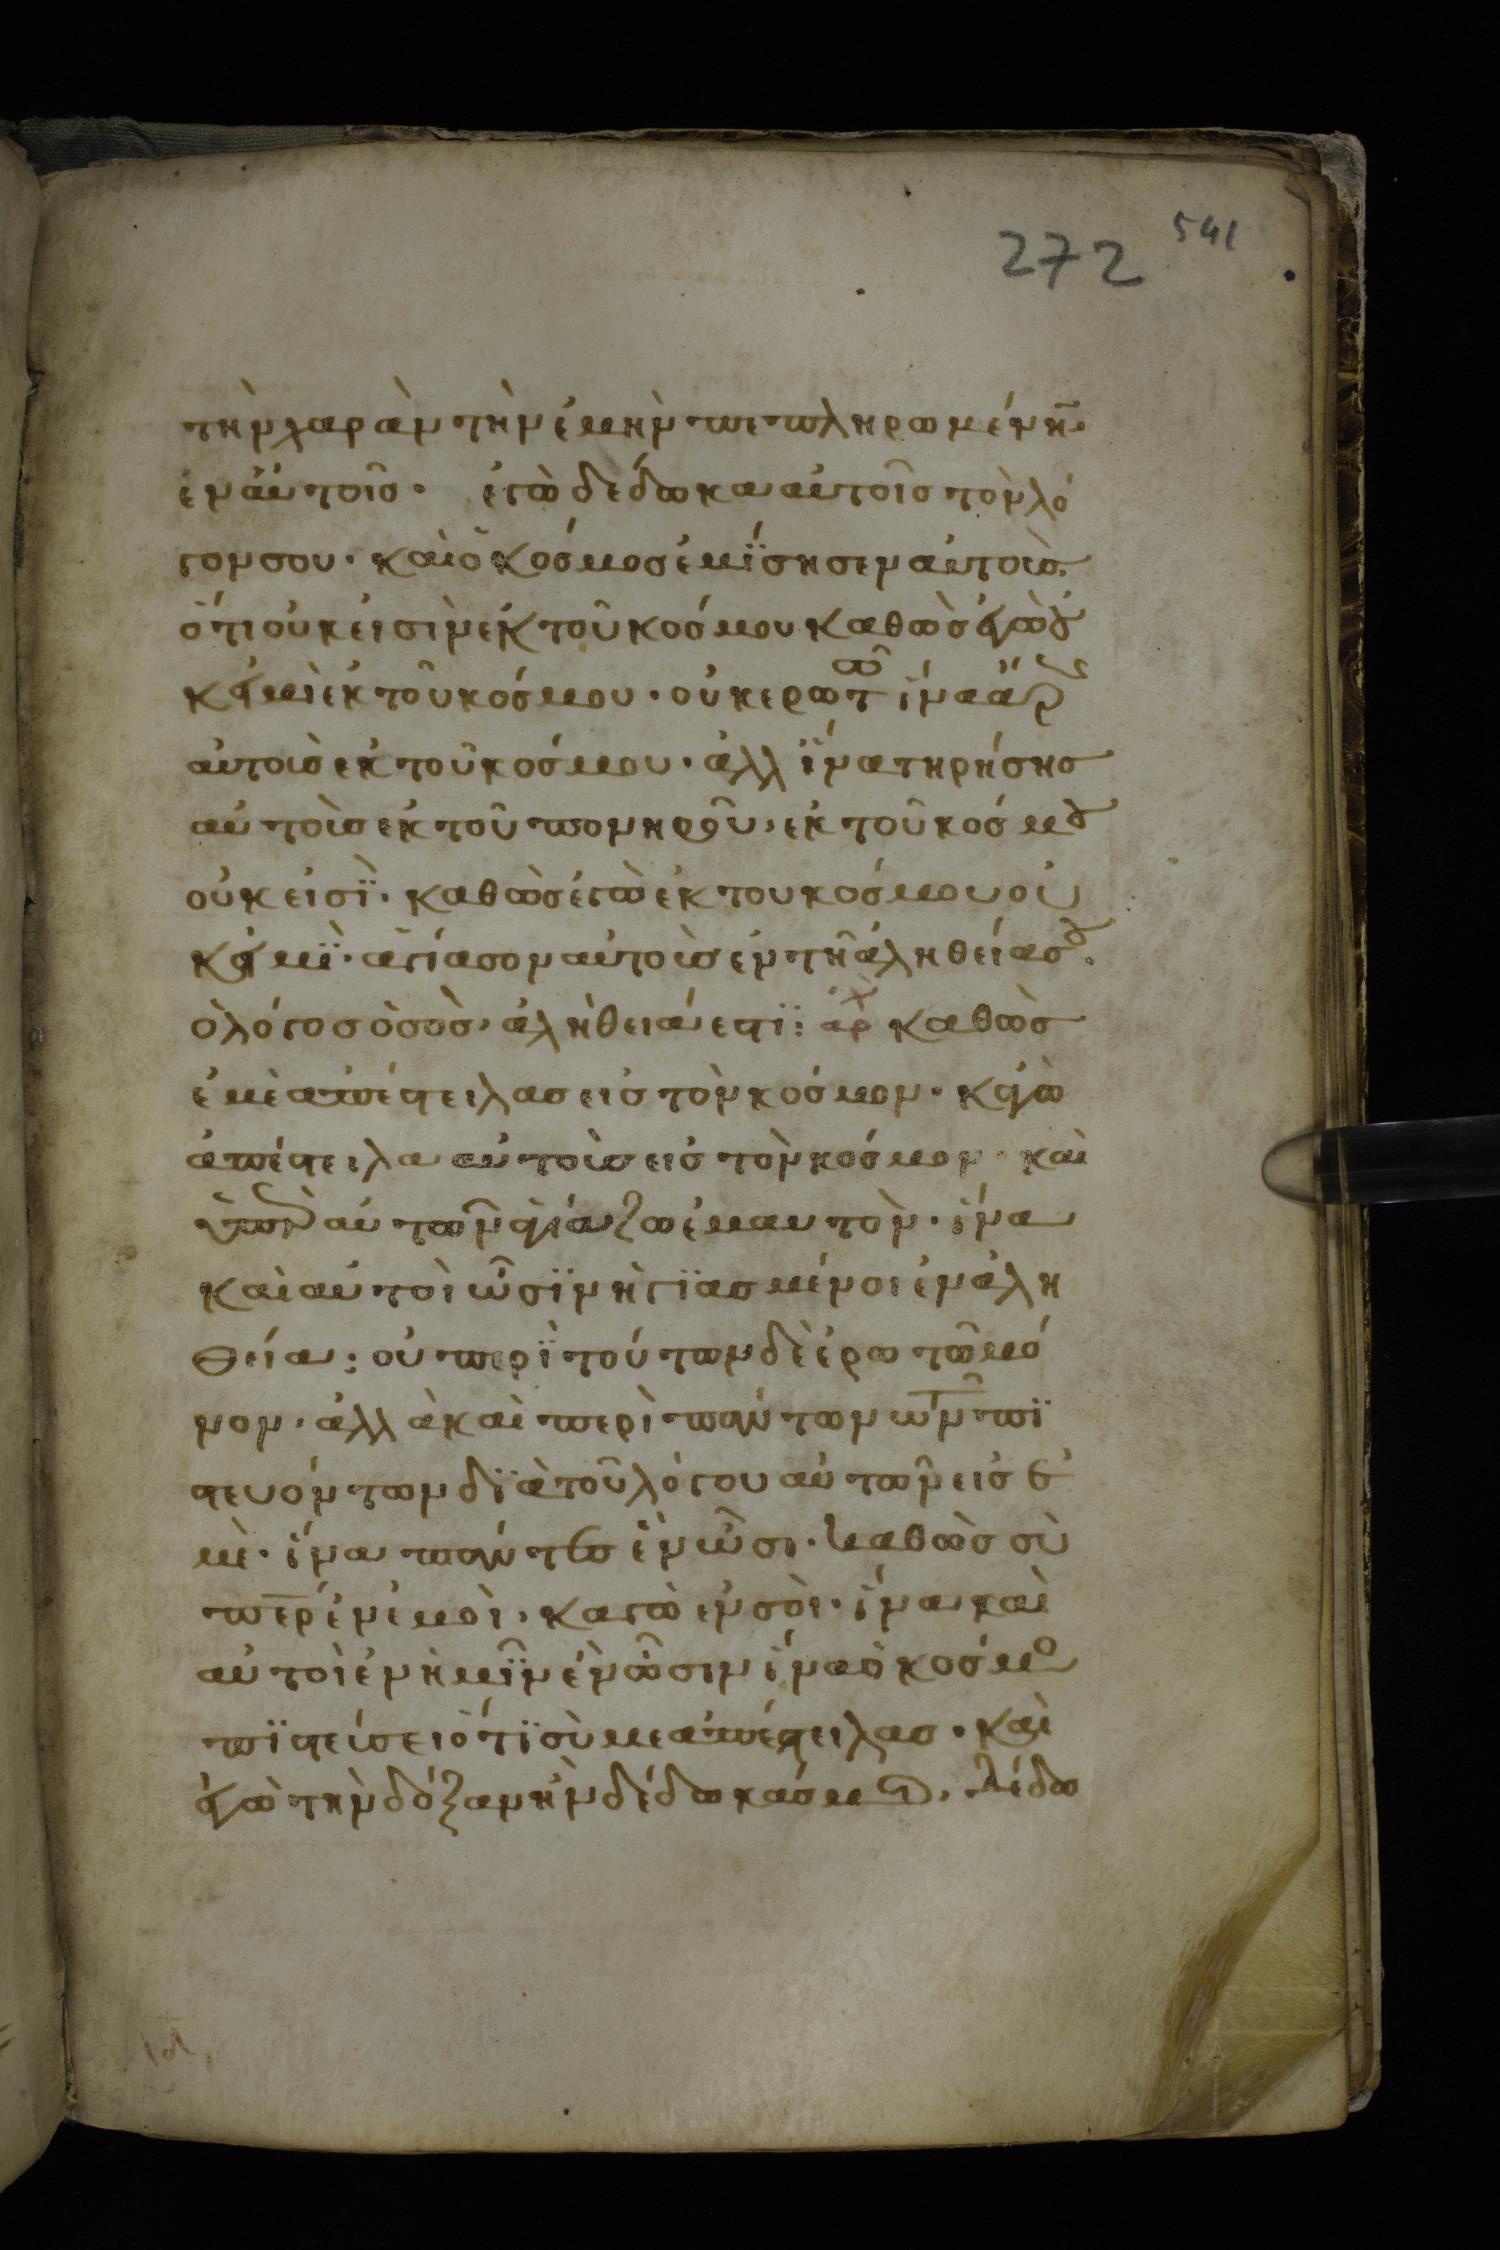 272 541
τὴν χαρὰν τὴν ἐμὴν πεπληρωμένη̅
ἐν ἀυτοῖσ· ἐγὼ δέδωκα αὐτοῖσ τὸν λό
γον σου· καὶ ὁ κόσμοσ ἐμΐσησεν αὐτοὺσ,
ὅτι οὐκ εἰσὶν ἐκ τοῦ κόσμου καθὼσ ἐγὼ οὐ
κ εἰμὶ ἐκ τοῦ κόσμου· οὐκ ερωτῶ ἵνα ἄρῃσ
αὐτοὺσ ἐκ τοῦ κόσμου· ἀλλ ἵνα τηρήσησ
αὐτοὺσ ἐκ τοῦ πονηροῦ, ἐκ τοῦ κόσμου
οὐκ εἰσΐ· καθὼσ ἐγὼ ἐκ του κόσμου οὐ
κ εἰμΐ· ἁγίασον αὐτοὺσ ἐν τῆ ἀληθεία σου.
ὁ λόγοσ ὁ σὸσ, ἀλήθεια ἐστΐ: ἀρχ καθὼσ
ἐμὲ ἀπέστειλασ εἰσ τὸν κόσμον· κἀγὼ
ἀπέστειλα αὐτοὺσ εἰσ τὸν κόσμον· καὶ
ὑπὲρ αὐτῶν ἁγιάζω ἐμαυτὸν· ἵνα
καὶ αὐτοὶ ὦσΐν ἡγϊασμένοι ἐν ἀλη
θεία: οὐ περῒ τούτων δὲ ἐρωτῶ μό
νον, ἀλλὰ καὶ περὶ πάντων τῶν πϊ
στευόντων δϊὰ τοῦ λόγου αὐτῶν εἰσ ἐ
μὲ· ἵνα πάντεσ ἓν ὦσι· καθὼσ σὺ
περ ἐν ἐμοὶ, καγὼ ἐν σοὶ· ἵνα καὶ
αὐτοὶ ἐν ἡμῖν ἓν ὦσιν ἵνα ὁ κόσμοσ
πϊστεύσει ὅτϊ σὺ με ἀπέστειλασ· καὶ
ἐγὼ τὴν δόξαν ἣν δέδωκάσ μοι, δέδω